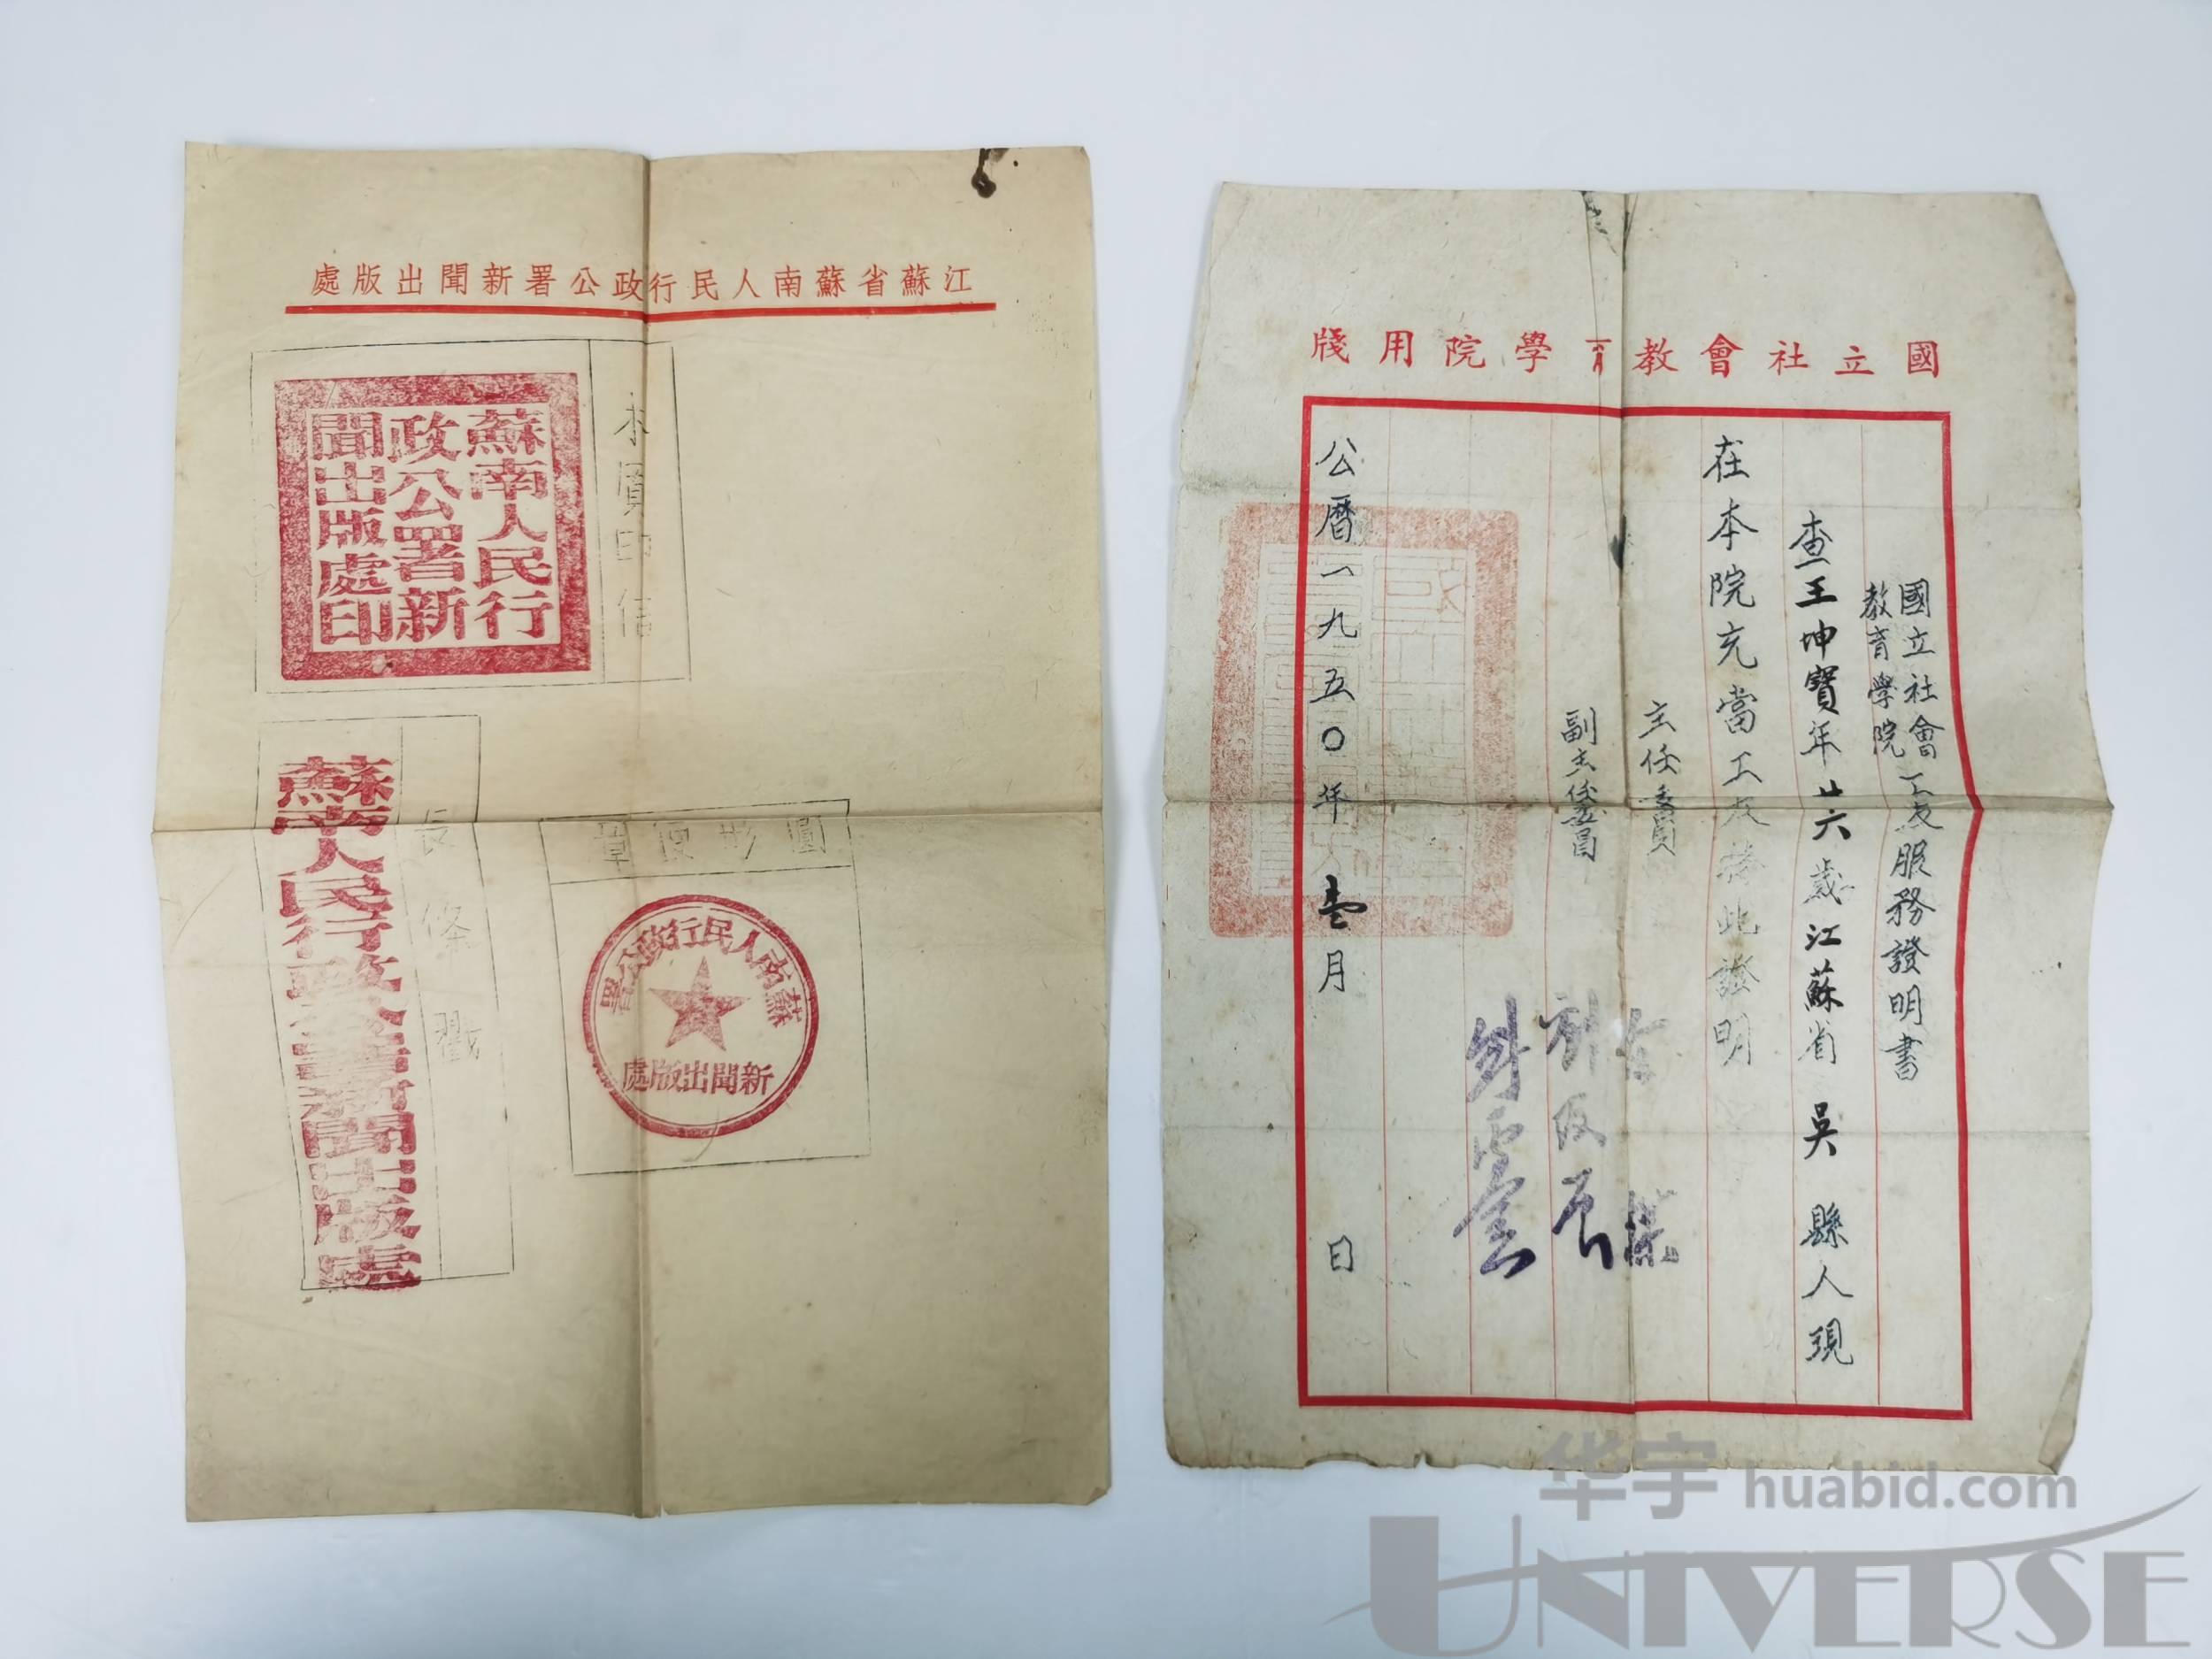 江蘇省蘇南人民行政公署新聞出版處
本 印信
蘇南人民行
政公署新
聞出版處印
長條戳
蘇南人民行政公署新聞出版處
圓形便章
蘇南人民行政公署
新聞出版處
國立社會教育學院用牋
國立社會
教育學院
工友服務證明書
查王坤寶年廿六歲江蘇省吳縣人現
在本院充當工友特此證明
主任委員
副主任委員
公曆一九五〇年壹月 日
华宇 huabid.com
UNIVERSE